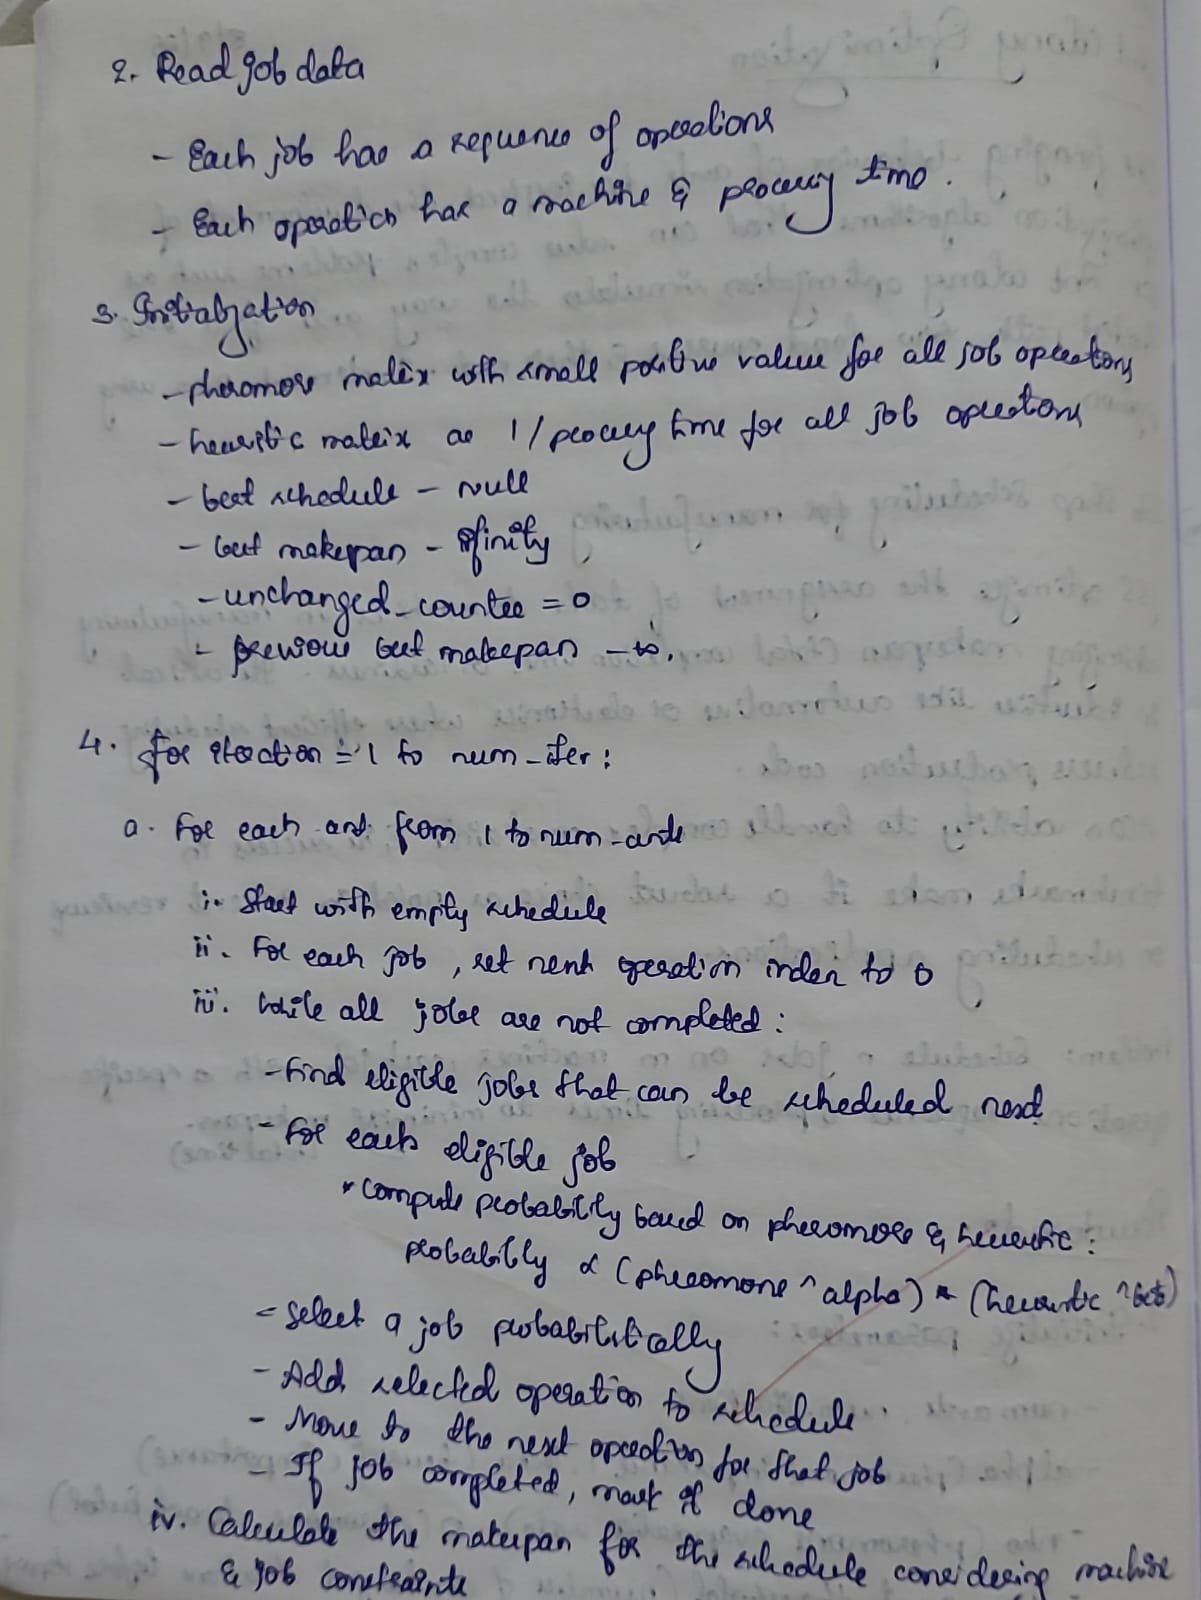 2. Read job data
- Each job has a sequence of operations
- Each operation has a machine & processing time.
3. Initialization
- pheromone matrix with small positive value for all job operations
- heuristic matrix as 1/processing time for all job operations
- best schedule - null
- best makespan - infinity
- unchanged_counter = 0
- previous best makespan - ∞.
4. For iteration = 1 to num_iter:
a. For each ant from 1 to num_ants
i. Start with empty schedule
ii. For each job, set next operation index to 0
iii. While all jobs are not completed:
- Find eligible jobs that can be scheduled next
- For each eligible job
* compute probability based on pheromone & heuristic:
probability ∝ (pheromone ^ alpha) * (heuristic ^ beta)
- Select a job probabilistically
- Add selected operation to schedule
- Move to the next operation for that job
- If job completed, mark it done
iv. Calculate the makespan for the schedule considering machine
& job constraints